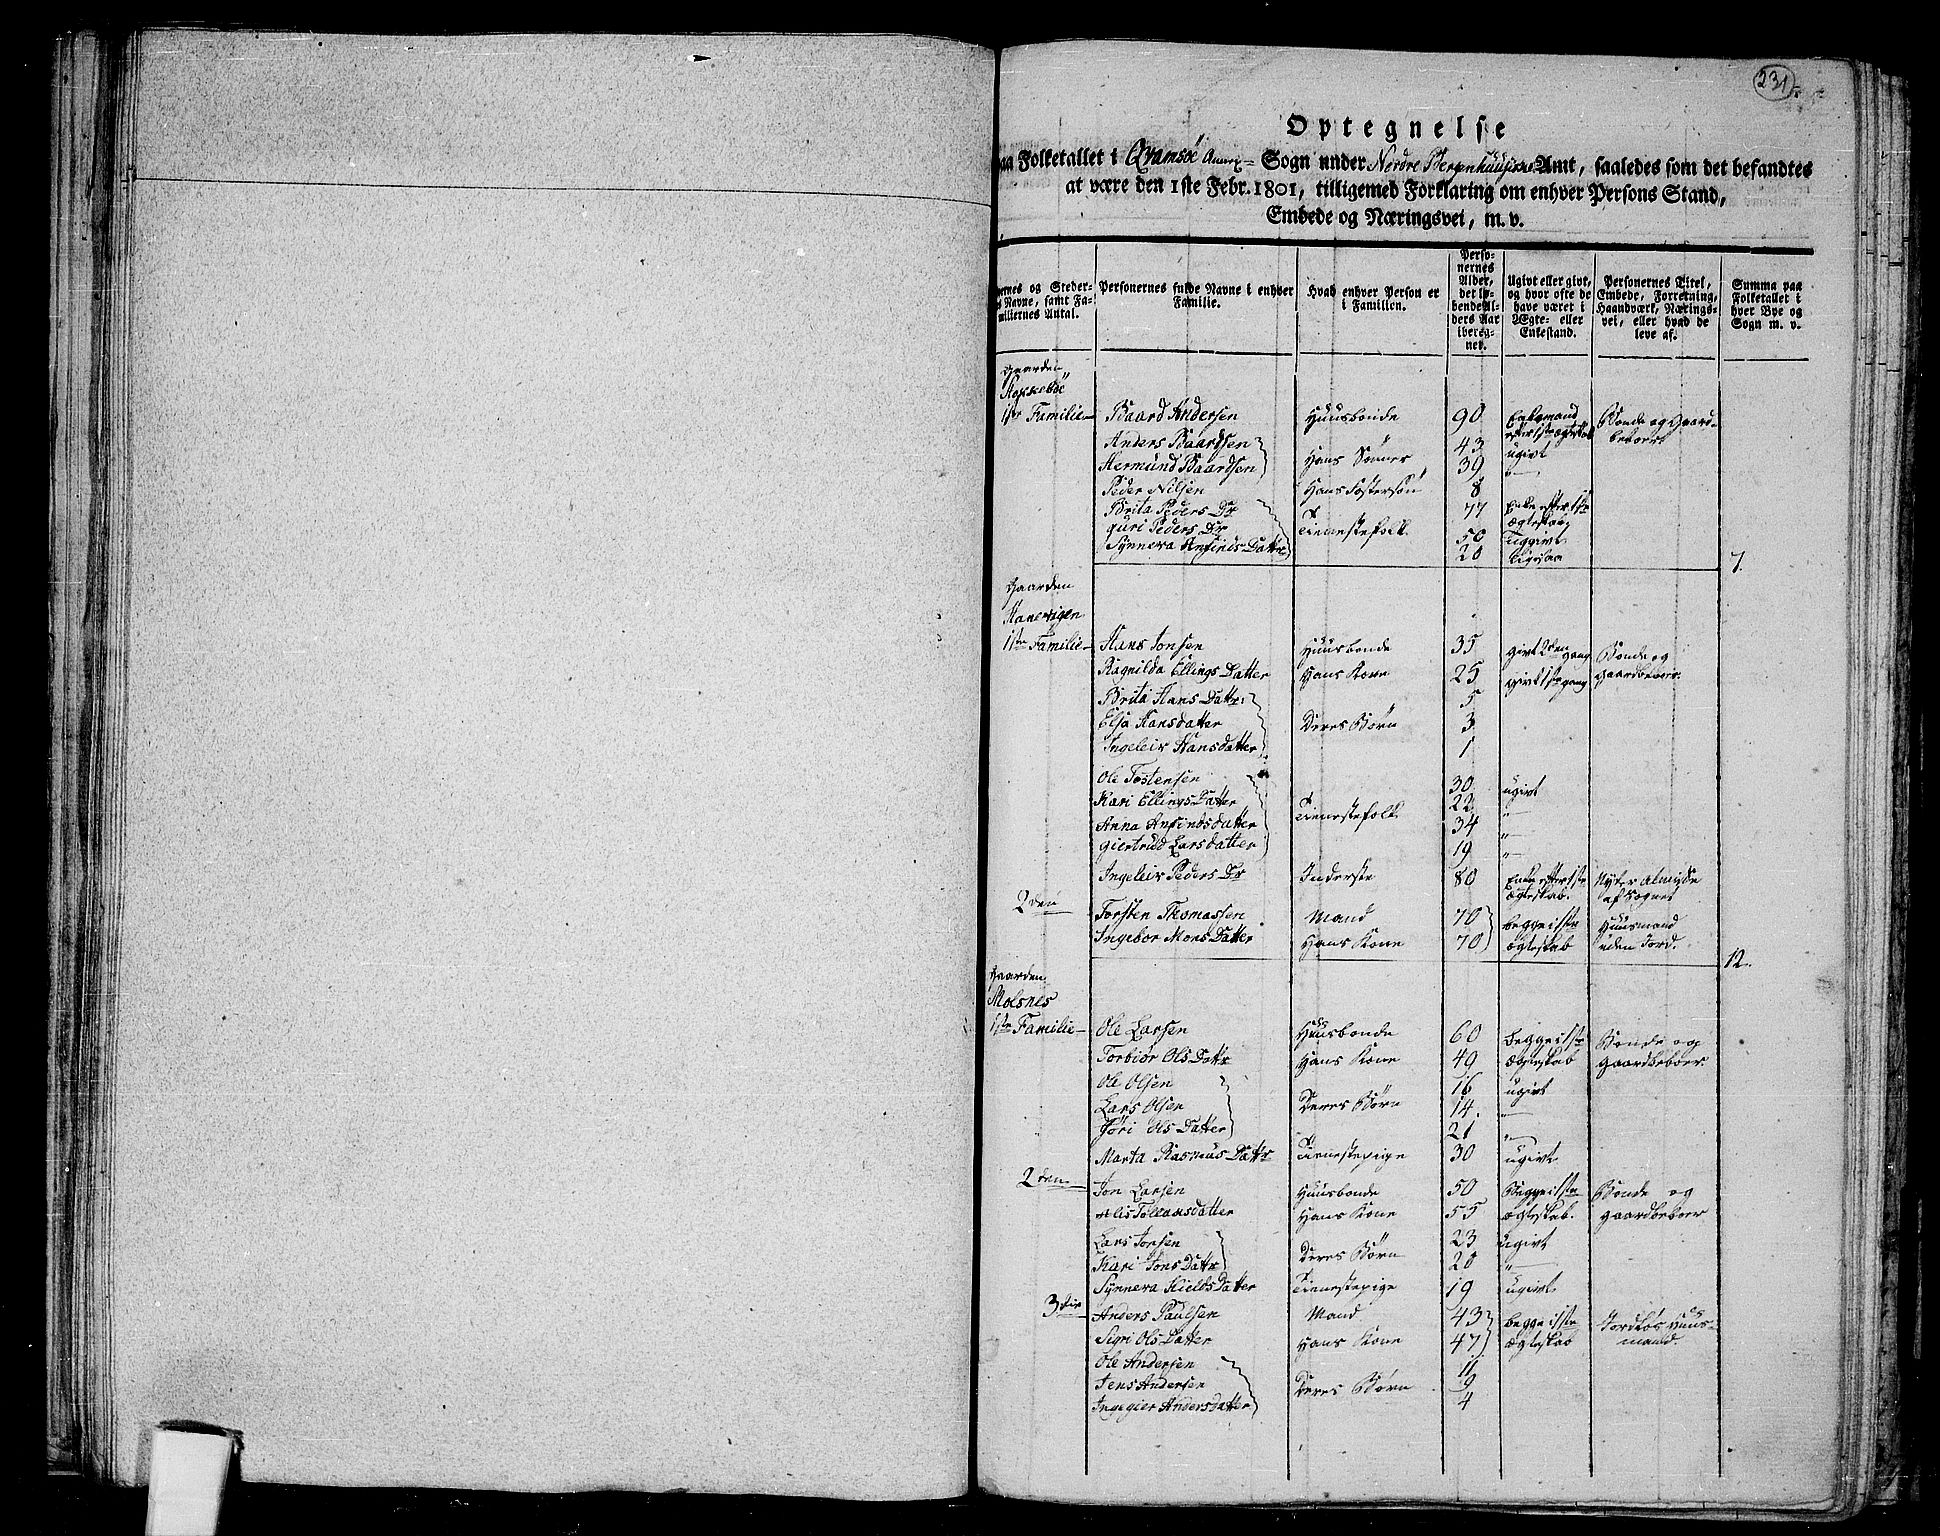 231
Optegnelse
paa Folketallet i Qvamsøe Annex Sogn under Nordre Bergenhuus Amt, saaledes som det befandtes
at være den 1ste Febr. 1801, tilligemed Forklaring om enhver Persons Stand,
Embede og Næringsvei, m. v.
ernes og Steder- s Navne, samt Fa- miliernes Antal.
Personernes fulde Navne i enhver Familie.
Hvad enhver Person er i Familien.
Perso- nernes Alder, det lø- bende Al- ders Aar iberegnet.
Ugivt eller givt, og hvor ofte de have været i Ægte- eller Enkestand.
Personernes Titel, Embede, Forretning, Haandværk, Nærings- vei, eller hvad de leve af.
Summa paa Folketallet i hver Bye og Sogn m. v.
Gaarden
1ste Familie Baard Andersen Huusbonde 90 Enkemand efter 1ste ægteskab Bonde og Gaard- beboer
Anders Baardsen 43 ugivt
Hermund Baardsen Hans Sønner 39 "
Peder Nilsen Hans Fostersøn 8
Brita Peders Dr 77 Enke efter 1ste
Guri Peders Dr Tienestefolk 50 Ægteskab Uggivt
Synneva Anfinds Dattr 20 ligesaa
7.
Gaarden
1ste Familie Hans Jonsen Huusbonde 35 givt 2den gang Bonde og
Ragnilda Ellings Datter Hans Kone 25 givt 1ste gang gaardbeboer
Brita Hans Dattr 5
Elsa Hansdatter Deres Børn 3
Ingeleiv Hansdatter 1
Ole Tostensen 30 ugivt
Kari Ellings Datter Tienestefolk 22 "
Anna Anfindsdatter 34 "
Giertrud Larsdatter 19 "
Ingeleiv Peders Dr Inderste 80 Enke efter 1ste ægteskab. Nyder Almisse af Sognet
2den Torsten Thomassen Mand 70 begge i 1ste Huusmand
Ingebor Mons Datter Hans Kone 70 ægteskab uden Jord.
12.
Gaarden
Molsnes
1ste Familie Ole Larsen Huusbonde 60 begge i 1ste Bonde og
Torbiør Ols Dattr Hans Kone 49 ægteskab gaardbeboer
Ole Olsen 16 ugivt
Lars Olsen Deres Børn 14. "
Jøri Ols Datter 21 "
Marta Rasmus Dattr Tienestepige 30 ugivt
2den Jon Larsen Huusbonde 50 Begge i 1ste Bonde og
Alis Tollansdatter Hans Kone 55 ægteskab. gaardbeboer
Lars Jonsen 23 ugivt
Kari Jons Dattr Deres Børn 20 "
Synneva Kields Datter Tienestepige 19 ugivt
3die Anders Paulsen Mand 43 begge i 1ste Jordløs Huus-
Sigri Ols Datter Hans Kone 47 ægteskab mand.
Ole Andersen 11
Jens Andersen Deres Børn 9
Ingegier Andersdatter 4